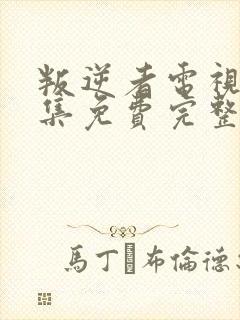 叛逆者電視
集免費完整
馬丁 布倫德